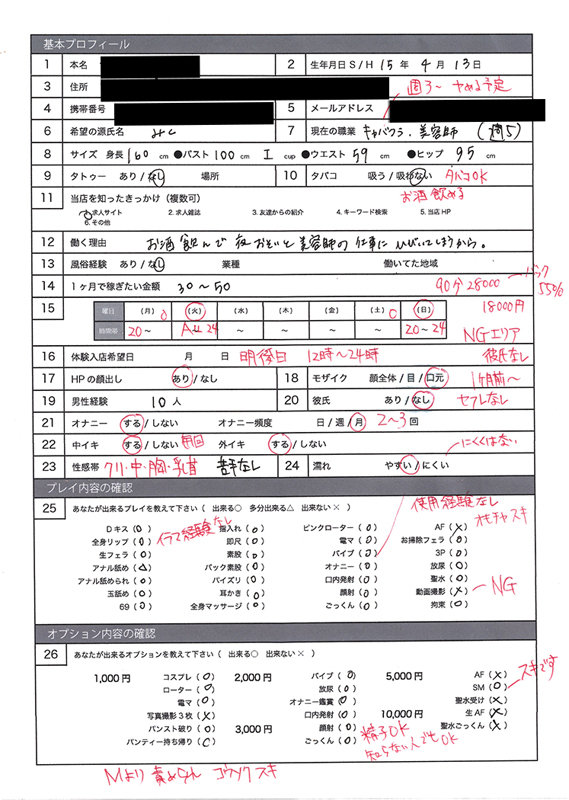 基本プロフィール
1 本名
2 生年月日 S / H 15 年 4 月 13 日
3 住所
週3〜 ヤめる予定
4 携帯番号
5 メールアドレス
6 希望の源氏名 みく
7 現在の職業 キャバクラ、美容師 (週5)
8 サイズ 身長 160 cm ●バスト 100 cm I cup ●ウエスト 59 cm ●ヒップ 95 cm
9 タトゥー あり / なし 場所
10 タバコ 吸う / 吸わない タバコOK
お酒 飲める
11 当店を知ったきっかけ (複数可)
1.求人サイト 2.求人雑誌 3.友達からの紹介 4.キーワード検索 5.当店HP
6.その他
12 働く理由 お酒 飲んで 夜おそいと美容師の仕事に ひびいてしまうから。
13 風俗経験 あり / なし 業種 働いてた地域
14 1ヶ月で稼ぎたい金額 30〜50
90分 28000 バック
55%
18000円
15 曜日 (月) (火) (水) (木) (金) (土) (日)
時間帯 20〜 All 24 〜 〜 〜 〜 20〜24
NGエリア
16 体験入店希望日 月 日 明後日 12時〜24時
彼氏なし
17 HPの顔出し あり / なし
18 モザイク 顔全体 / 目 / 口元
1ヶ月前〜
19 男性経験 10 人
20 彼氏 あり / なし
セフレなし
21 オナニー する / しない オナニー頻度 日 / 週 / 月 2〜3 回
22 中イキ する / しない 外イキ する / しない
にくくはない
23 性感帯 クリ・中・胸・乳首 苦手なし
24 濡れ やすい / にくい
プレイ内容の確認
25 あなたが出来るプレイを教えて下さい ( 出来る○ 多分出来る△ 出来ない× )
使用経験なし
オモチャスキ
イラマ経験なし
Dキス (○) 指入れ (○) ピンクローター (○) AF (×)
全身リップ (○) 即尺 (○) 電マ (○) お掃除フェラ (○)
生フェラ (○) 素股 (○) バイブ (○) 3P (○)
アナル舐め (△) バック素股 (○) オナニー (○) 放尿 (○)
アナル舐められ (○) パイズリ (○) 口内発射 (○) 聖水 (○)
玉舐め (○) 耳かき (○) 顔射 (○) 動画撮影 (×) NG
69 (○) 全身マッサージ (○) ごっくん (○) 拘束 (○)
オプション内容の確認
26 あなたが出来るオプションを教えて下さい ( 出来る○ 出来ない× )
スキです
1,000円 コスプレ (○) 2,000円 バイブ (○) 5,000円 AF (×)
ローター (○) 放尿 (○) SM (○)
電マ (○) オナニー鑑賞 (○) 聖水受け (×)
写真撮影3枚 (×) 口内発射 (○) 10,000円 生AF (×)
パンスト破り (○) 3,000円 顔射 (○) 聖水ごっくん (×)
パンティー持ち帰り (○) ごっくん (○)
精子OK
知らない人でもOK
Mより コウソク スキ